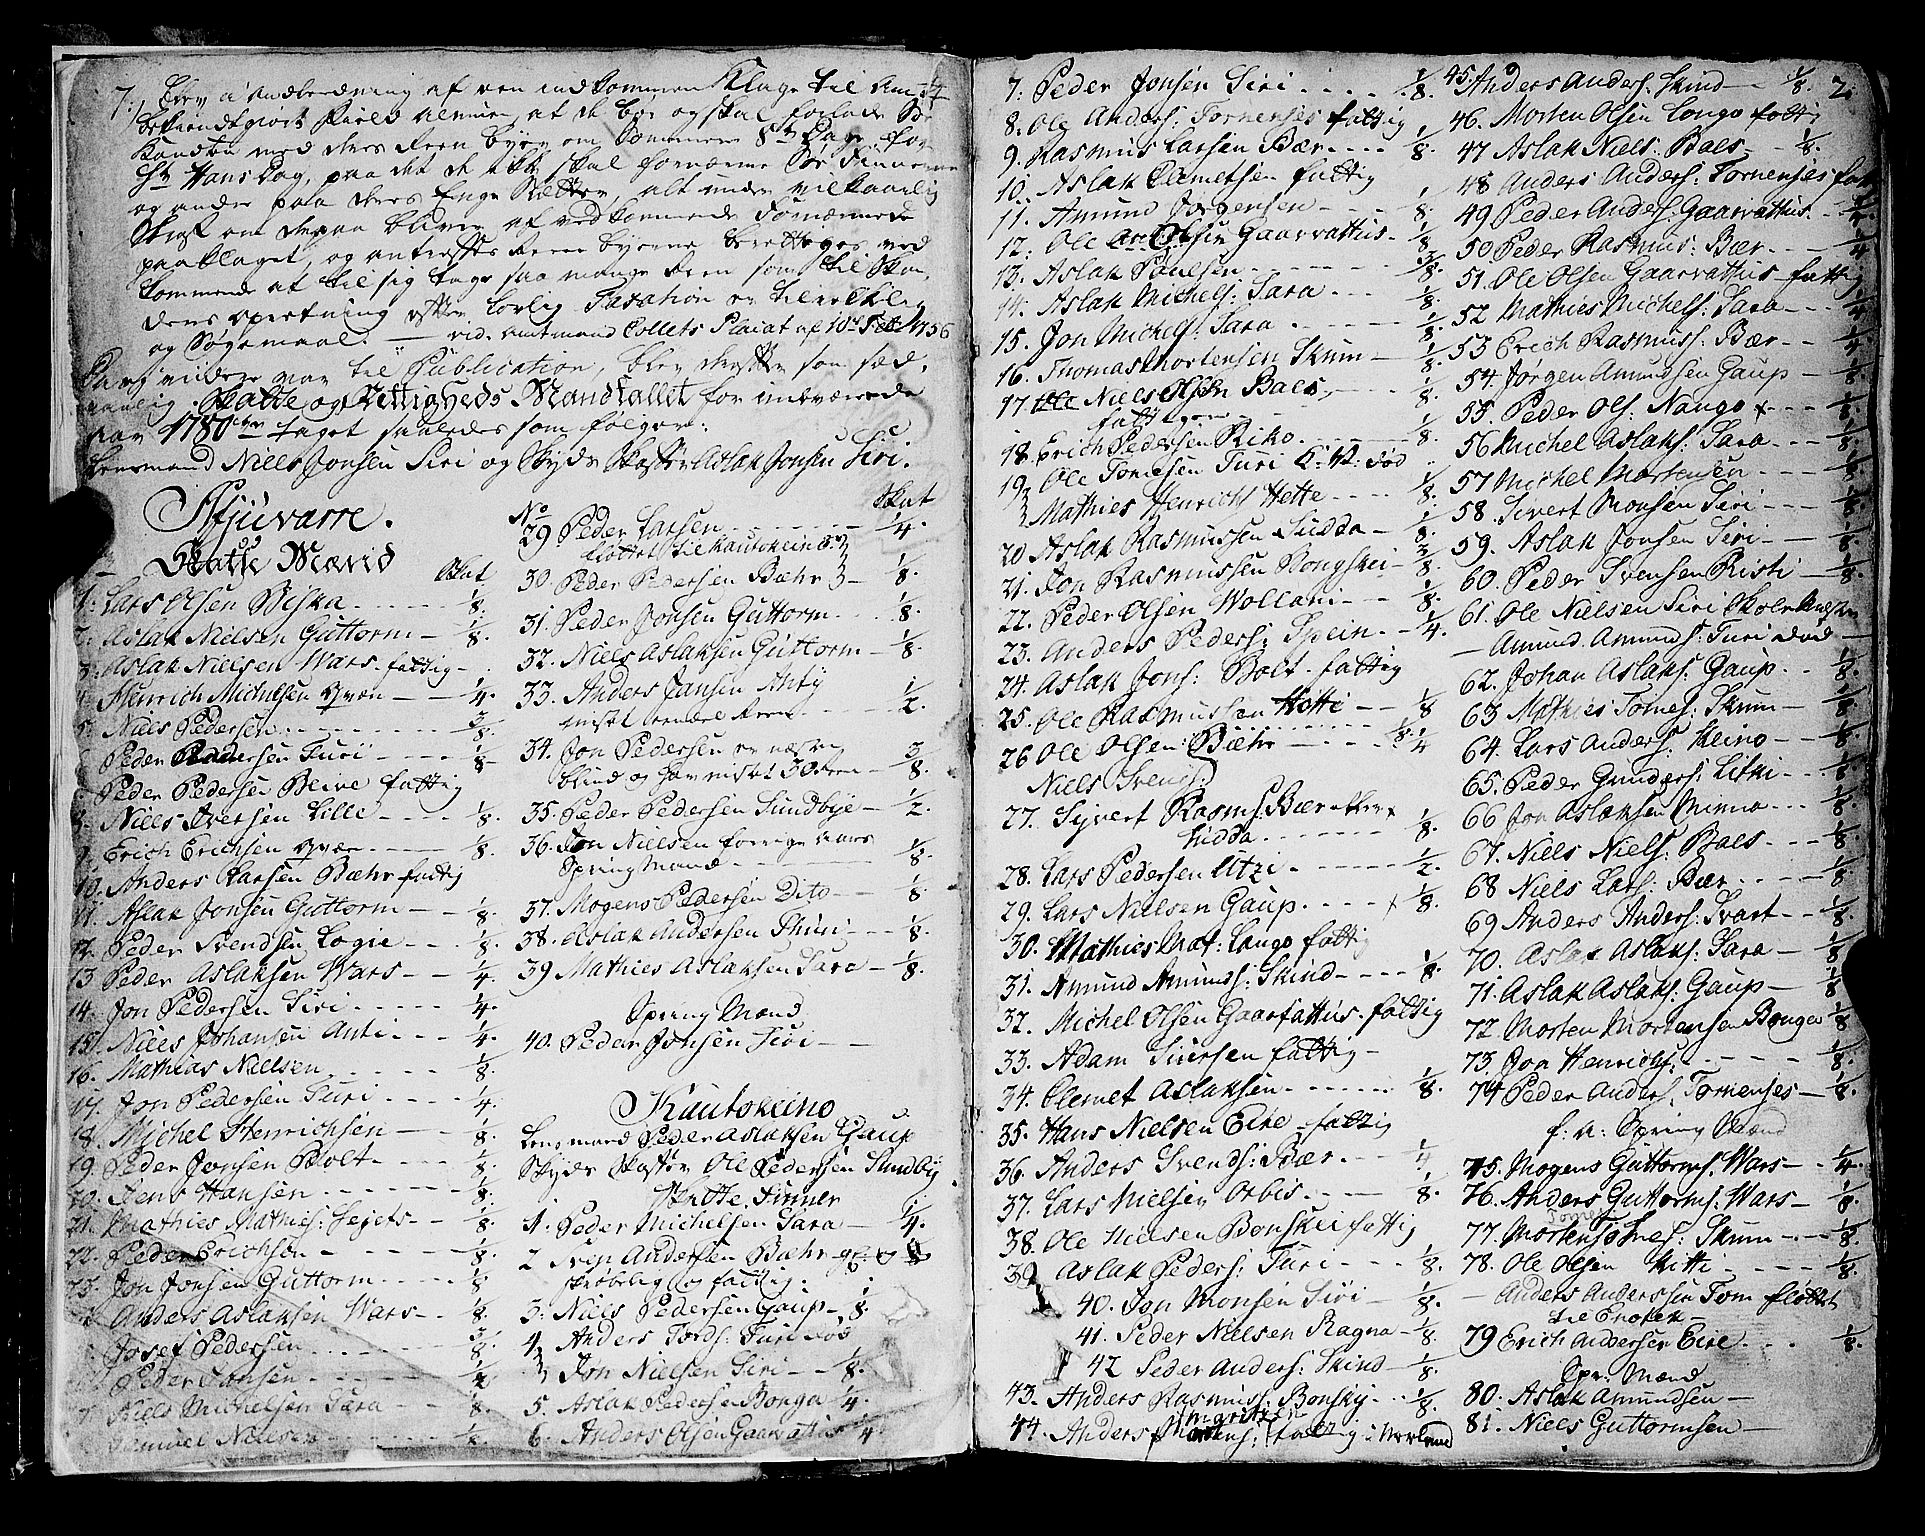 7:/ Blev i Anledning af den indkommen Klage til Am:
bekiendtgiort Field almuen at de bør og skal forlade Søe
Kandten med deres Reen byer om Sommeren 8te Dage før
St Hans Dag, paa det de ikke skal fornærme Søe Finnerne
og andre paa deres Enge Sletter, alt under vilkaarlig
Straf om derpaa bliver af vedkommende Fornærmede
paaklaget, og antreffes Reen byerne berettiges ved
kommende at til sig tage saa mange Reen som til Ska,
dens opretning efter lovlig Taxation er tilrekkelig
og Søgemaal. — vid. Amtmand Collets Placat af 10de Febr 1756
til Publication, blev derefter som sæd,
vaanlig Skatte og Rettigheds Mandtallet for indeværende
Aar 1780 taget saaledes som følger:
Lensmand Niels Jonsen Siri og Skyds Skaffer Aslak Jonsen Siri.
Afjuvarre.
Skatte Mænd
Skat
1: Lars Olsen Biska - - - 1/8.
2. Aslak Nielsen Guttorm - 1/8.
3. Aslak Nielsen Wars fattig -
4. Henrich Michelsen qvæn - 1/4.
5. Niels Pedersen - - - 3/8.
6 Peder Pedersen Turi - - - 1/8
Peder Pedersen Beive fattig
8. Niels Iversen Lille - - - 1/8.
9. Erich Erichsen qvæn - - 1/8.
10. Anders Larsen Bæhr fattig
11. Aslak Jonsen Guttorm - - 1/8.
12. Peder Svendsen Logie - - 1/8.
13 Peder Aslaksen Wars - - 1/4.
14. Jon Pedersen Siri - - - 1/4.
15. Niels Johansen Anti - - - 1/4.
16. Mathias Nielsen - - - 1/8.
17. Jon Pedersen Turi - - - 1/4.
18. Michel Henrichsen - - 1/8.
19. Peder Jonsen Bolt - - - 1/8.
20. Jens Hansen - - - 1/8.
21. Mathies Mathies: Sejets - - 1/8.
22. Peder Erichsen - - - 1/8.
23. Jon Jonsen Guttorm - - - 1/8
Anders Aslaksen Wars - 1/8.
Josef Pedersen - - - 3/8.
Peder Jansen - - -
Niels Michelsen Sara - 1/8.
Samuel Nielsen -
No Skat
29 Peder Larsen - - - 1/4.
fløttet til Kautokeino
30. Peder Pedersen Bæhr - 1/8.
31. Peder Jonsen Guttorm - - 1/8.
32. Niels Aslaksen Guttorm - 1/8.
33. Anders Jansen Anty
mist eendel Reen - - - 1/2.
34. Jon Pedersen er næsten
blind og har mistet 30 Reen - 3/8.
35. Peder Pedersen Sundbye - 1/2.
36. Jon Nielsen forrige Aars
Spring Mand - - - 1/8.
37. Mogens Pedersen Dito - 1/8.
38. Aslak Andersen Thuri - - 1/8.
39 Mathies Aslaksen Sara - 1/8.
Spring Mænd
40. Peder Jonsen Siri - -
Kautokeino
Lensmand Peder Aslaksen Gaup
Skyds Skaffer Ole Pedersen Sundby
Skatte Finner
1. Peder Michelsen Sara - 1/4.
2 Svend Andersen Bæhr
skrøbelig og fattig.
3. Niels Pedersen Gaup - 1/8.
4. Anders Fords: Turi død
Jon Nielsen Siri - 1/8.
5. Aslak Pedersen Bonga 1/4.
6. Anders Olsen Gaarvattus 1/4
7. Peder Jonsen Siri - - - 1/8.
8. Ole Anders: Tornensjes fattig
9. Rasmus Larsen Bær - - - 1/8.
10. Aslak Clemetsen fattig
11. Amund Jørgensen - - - 1/8.
12. Ole Olsen Gaarvattus - 1/8
13. Aslak Poulsen - - - 3/8.
14. Aslak Michels: Sara - - - 1/8.
15. Jon Michels: Sara - - - 1/8.
16. Thomas Mortensen Skum - 1/8.
17 Niels Olsen Baes - - 1/8.
fattig
18. Erich Pedersen Riko - - - 1/8.
19. Ole Tomesen Turi død
Mathies Henrichs Hette - - - 1/8.
20 Aslak Rasmussen Sudda - 1/8.
21. Jon Rasmussen Bongskei - 3/8.
22. Peder Olsen Wollani - - 1/8.
23. Anders Peders: Spein - - 1/4.
24. Aslak Jons: Bolt - fattig
25. Ole Rasmussen Hetti - - 1/8
26 Ole Olsen Bæhr - - - 1/4
Niels Svends:
27. Sjvert Rasms: Bær
Sudda - - - 1/8.
28. Lars Pedersen Utzi - - - 1/2.
29. Lars Nielsen Gaup - - - 1/8.
30. Mathies Mat: Lango fattig
31. Amund Amunds: Skind - - - 1/8.
32. Michel Olsen Gaarfattus - fattig
33. Adam Siversen fattig -
34. Clemet Aslaksen - - - 1/8.
35. Hans Nielsen Eire - fattig
36. Anders Svends: Bær - - - 1/4
37. Lars Nielsen Orbis - - - 1/8.
38. Ole Nielsen Bonskei fattig
39 Aslak Peders: Turi - - - 1/8.
40. Jon Monsen Siri - - - 1/8.
41. Peder Nielsen Ragna - 1/8.
42 Peder Anders: Skind - 1/8.
43. Anders Rasmuss: Bonsky - - 1/8.
44. Anders Mortens: fattig i Norland
45. Anders Anders: Skind - 1/8. 2.
46. Morten Olsen Longo fattig
47 Aslak Niels: Baes - 1/8.
48 Anders Anders: Tornensjes fattig
49 Peder Anders: Gaarvattus - 1/4.
50 Peder Rasmus: Bær - - 1/4
51. Ole Olsen Gaarvattus - fattig
52 Mathies Michels: Sara - - 1/4.
53 Erich Rasmuss: Bær - - 1/4.
54. Jørgen Amundsen Gaup - 1/8.
55. Peder Ols: Nango - - - 1/8.
56 Michel Aslaks: Sara - - 1/8.
57 Michel Mortensen - - - 1/8.
58. Sivert Monsen Siri - - - 1/8.
59. Aslak Jonsen Siri - - - 1/8.
60. Peder Svensen Risti - - 1/8.
61. Ole Nielsen Siri Skole Mester
- Amund Amunds: Turi død -
62. Johan Aslaks: Gaup - 1/8.
63 Mathies Tomes: Skum - - 1/8.
64. Lars Anders: Keino - - 1/8.
65. Peder Gunders: Litki - - - 1/8.
66 Jon Aslaksen Minna - - - 1/8.
67. Niels Niels: Baes - - - 1/8.
68 Niels Lars: Bær - - - 1/8.
69 Anders Anders: Svart - - - 1/8.
70. Aslak Aslaks: Sara - - 1/8
71. Aslak Aslaks: Gaup - - 1/8
72 Morten Mortensen Bonga 1/8
73. Jon Henrichs: - - - 1/8.
74 Peder Anders: Tornensjes - 1/8.
f: A: Spring Mænd
75. Mogens Guttorms: Wars - 1/4.
76. Anders Guttorms: Wars - 1/8.
77. Morten Tomes: Skum - - - 1/8.
78. Ole Olsen Hitti - - - 1/8.
- Anders Anderssen Tom fløttet
til Enotek -
79 Erich Andersen Eire - - - 1/8.
Spr: Mænd
80. Aslak Amundsen -
81. Niels Guttormsen -